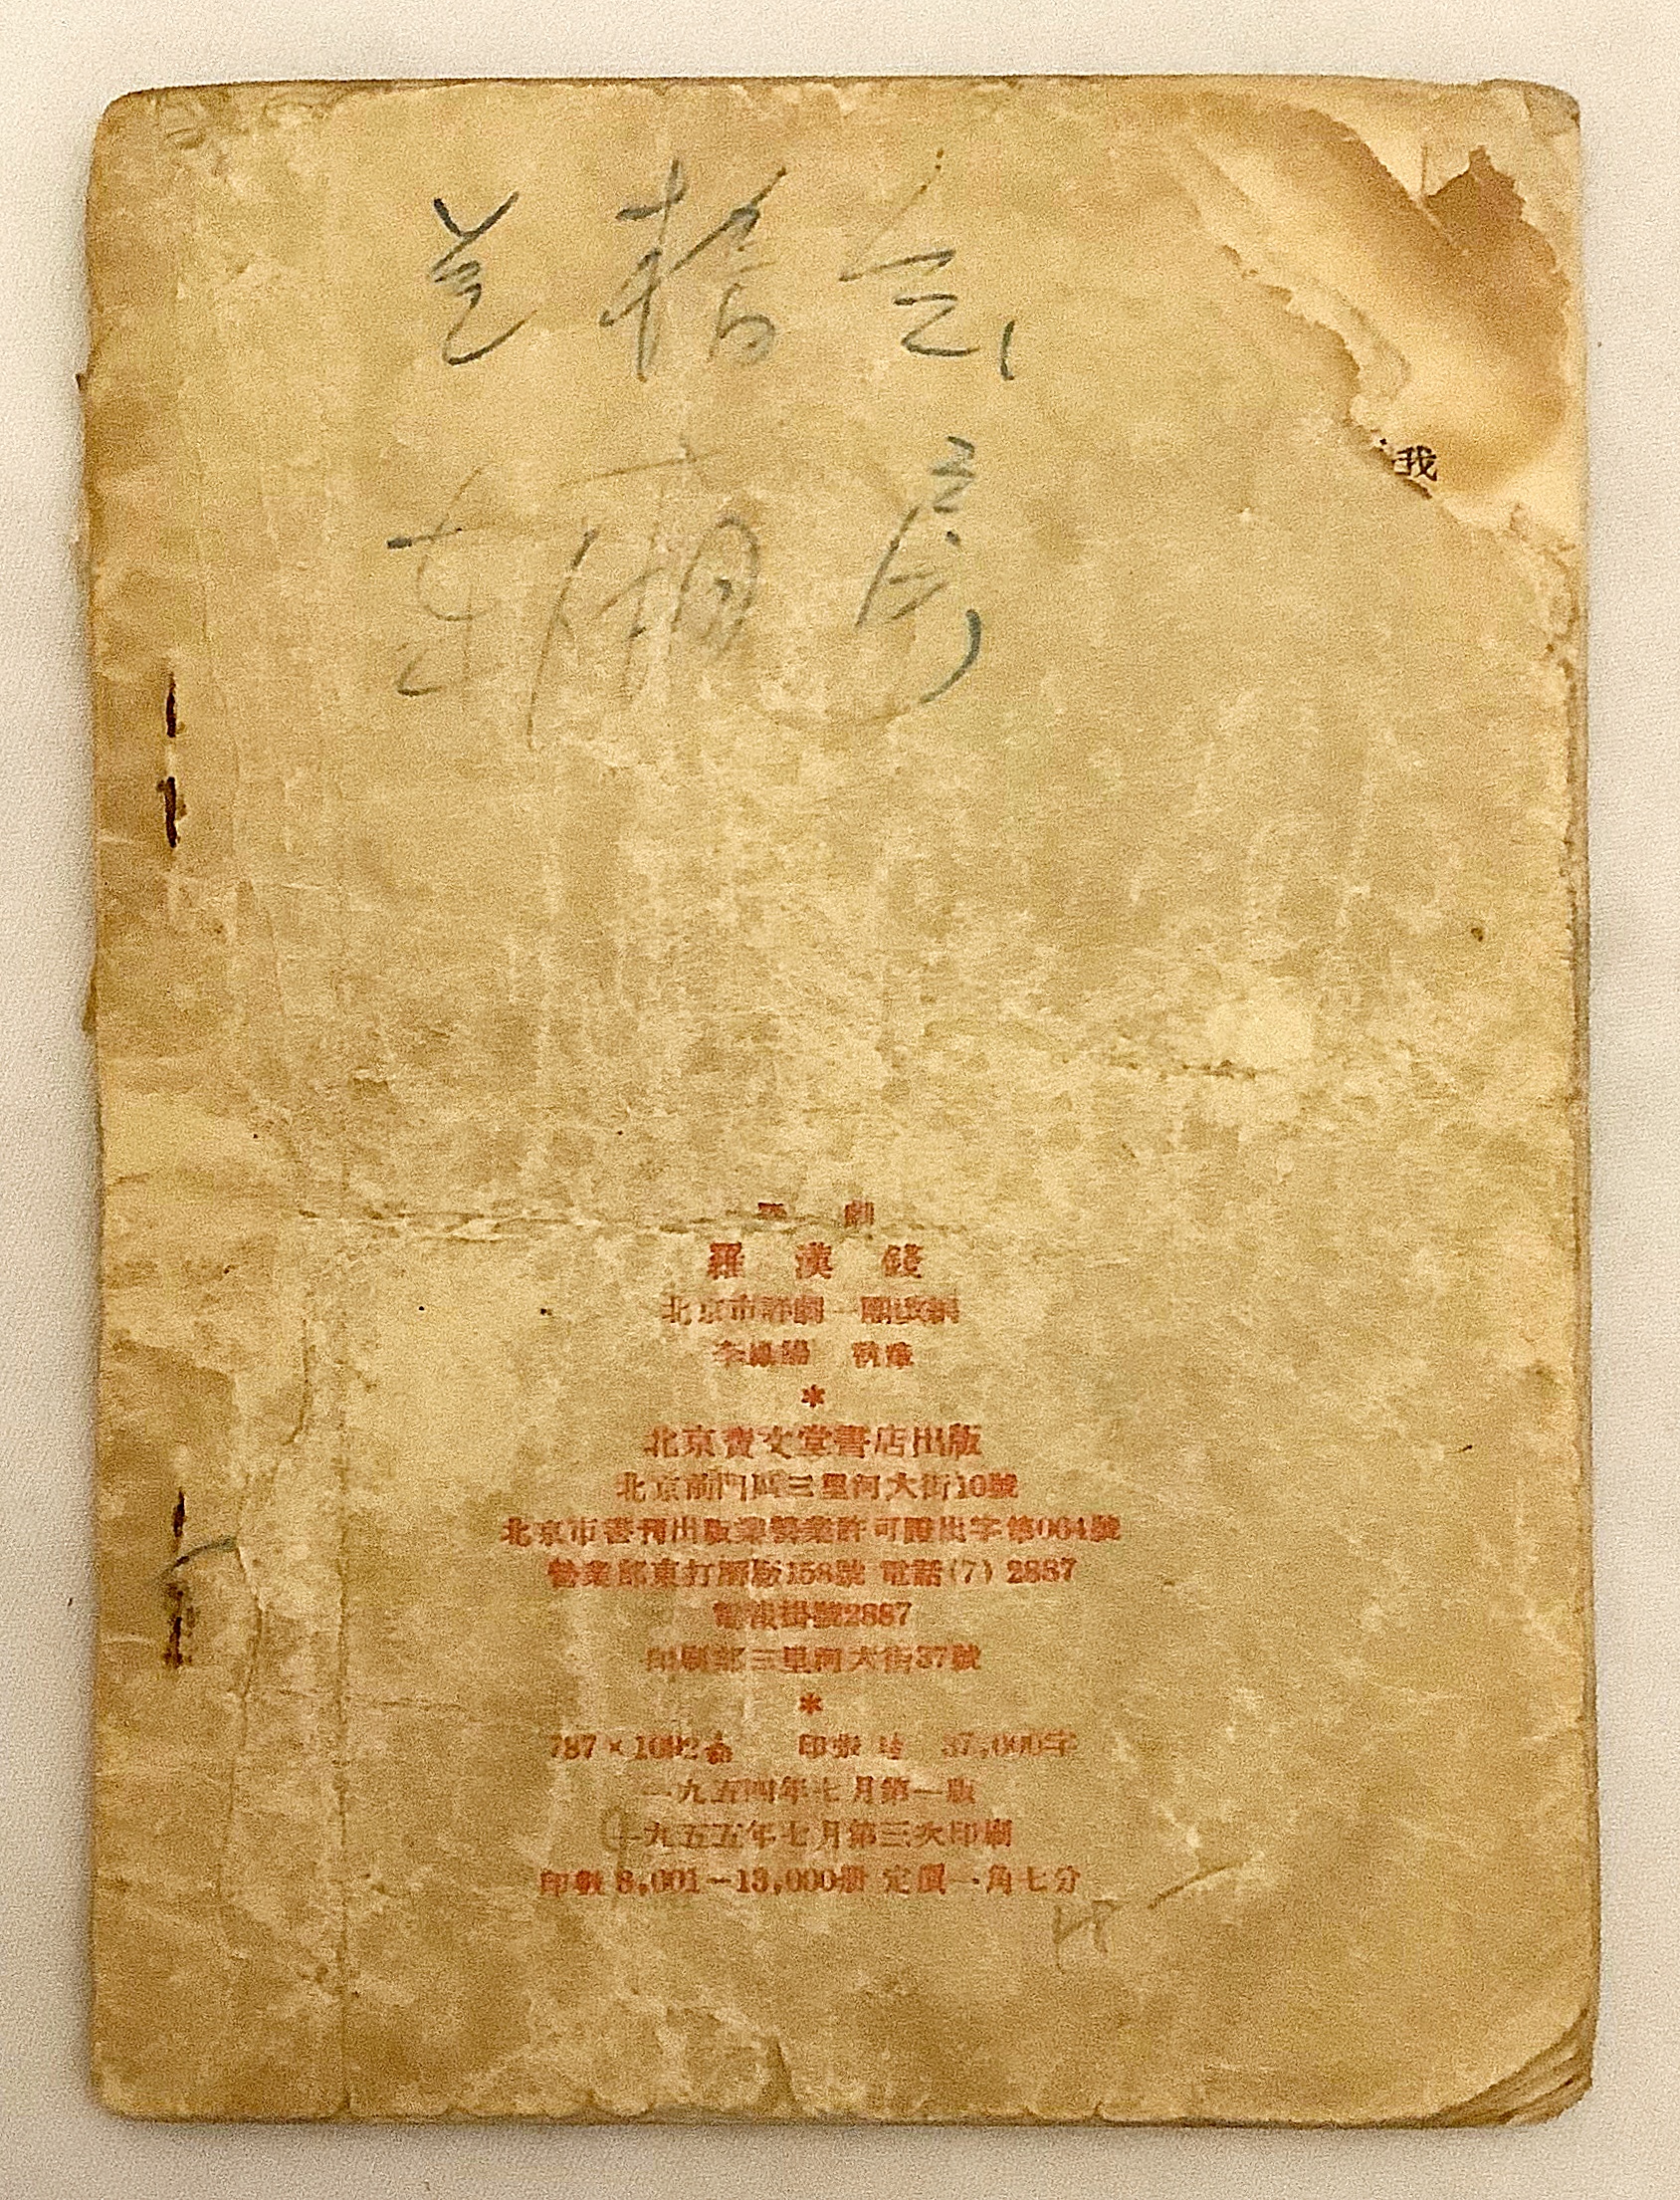 兰桥会
我
東廂房
評劇
羅漢錢
北京市評劇一團改編
李鳳陽 執筆
*
北京寶文堂書店出版
北京前門區三里河大街10號
北京市書刊出版業營業許可證出字第064號
營業部東打磨廠158號 電話(7) 2887
電報掛號2887
印刷部三里河大街37號
*
787×1092 印張 37,000字
一九五四年七月第一版
一九五五年七月第三次印刷
印數 8,001—13,000册 定價一角七分